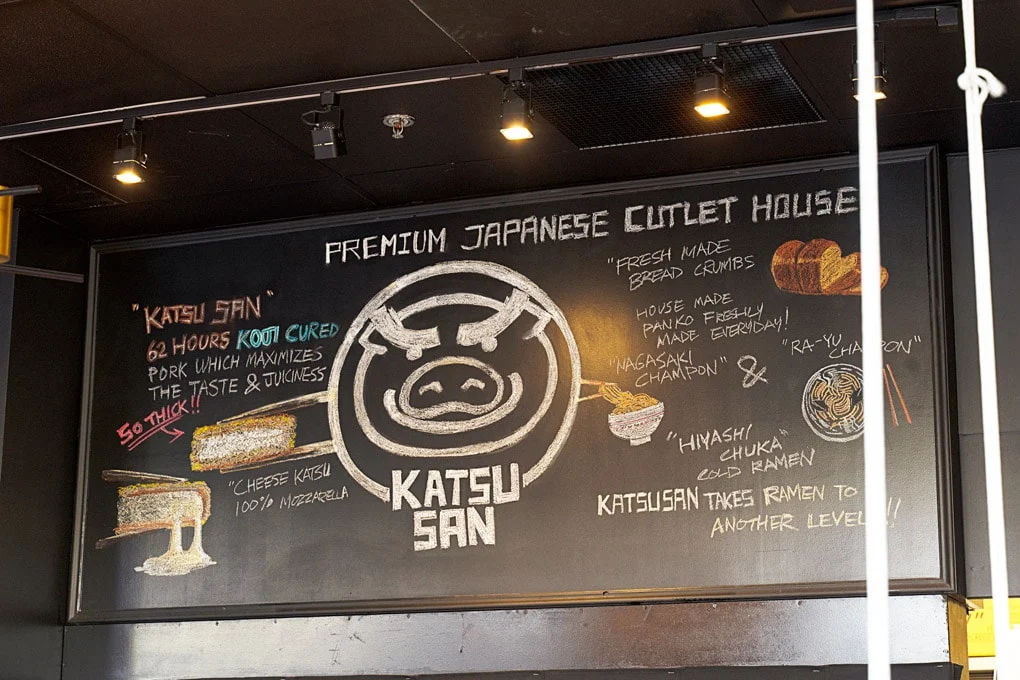 PREMIUM JAPANESE CUTLET HOUSE
"KATSU SAN"
62 HOURS KOJI CURED
PORK WHICH MAXIMIZES
THE TASTE & JUICINESS
SO THICK!!
"CHEESE KATSU
100% MOZZARELLA
KATSU
SAN
"FRESH MADE
BREAD CRUMBS
HOUSE MADE
PANKO FRESHLY
MADE EVERYDAY!
"NAGASAKI
CHAMPON" &
"RA-YU CHAMPON"
"HIYASHI
CHUKA"
COLD RAMEN
KATSUSAN TAKES RAMEN TO
ANOTHER LEVEL!!